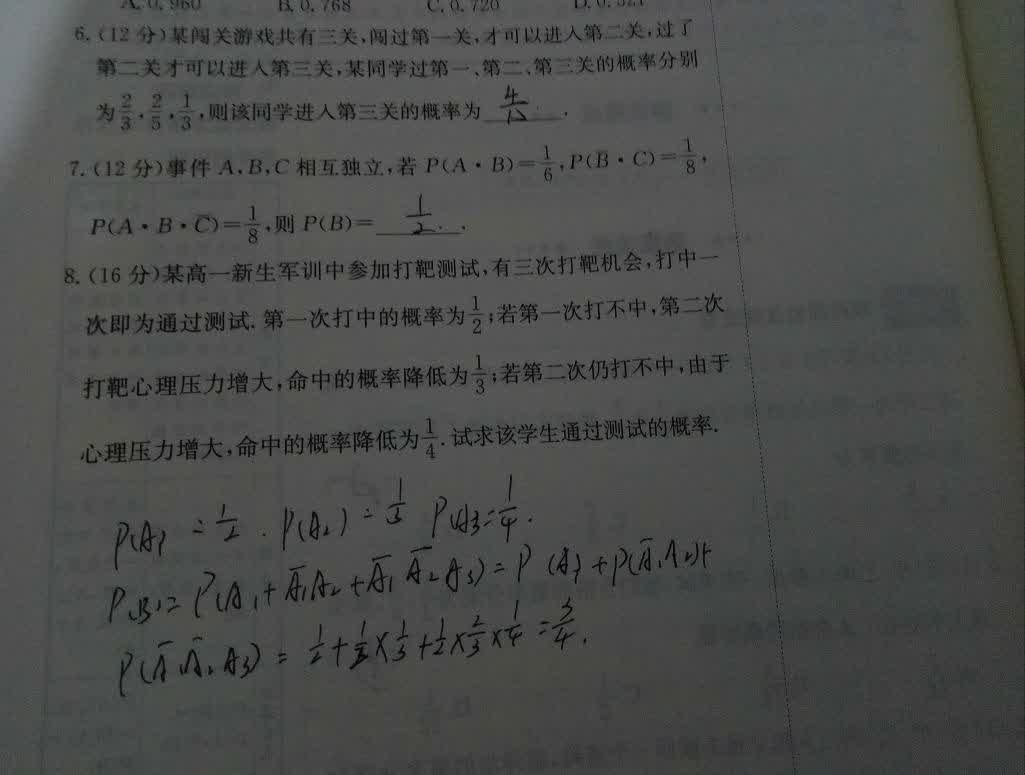 A. 0.960 B. 0.768 C. 0.720
6. (12分)某闯关游戏共有三关,闯过第一关,才可以进入第二关,过了
第二关才可以进入第三关,某同学过第一、第二、第三关的概率分别
为2/3,2/5,1/3,则该同学进入第三关的概率为 4/15 .
7. (12分)事件 A,B,C 相互独立,若 P(A·B)=1/6,P(B̄·C)=1/8,
P(A·B·C̄)=1/8,则 P(B)= 1/2 .
8. (16分)某高一新生军训中参加打靶测试,有三次打靶机会,打中一
次即为通过测试. 第一次打中的概率为1/2;若第一次打不中,第二次
打靶心理压力增大,命中的概率降低为1/3;若第二次仍打不中,由于
心理压力增大,命中的概率降低为1/4. 试求该学生通过测试的概率.
P(A₁)=1/2. P(A₂)=1/3 P(A₃)=1/4.
P(B)=P(A₁+Ā₁A₂+Ā₁Ā₂A₃)=P(A₁)+P(Ā₁A₂)+
P(Ā₁Ā₂A₃)=1/2+1/2×1/3+1/2×2/3×1/4=3/4.